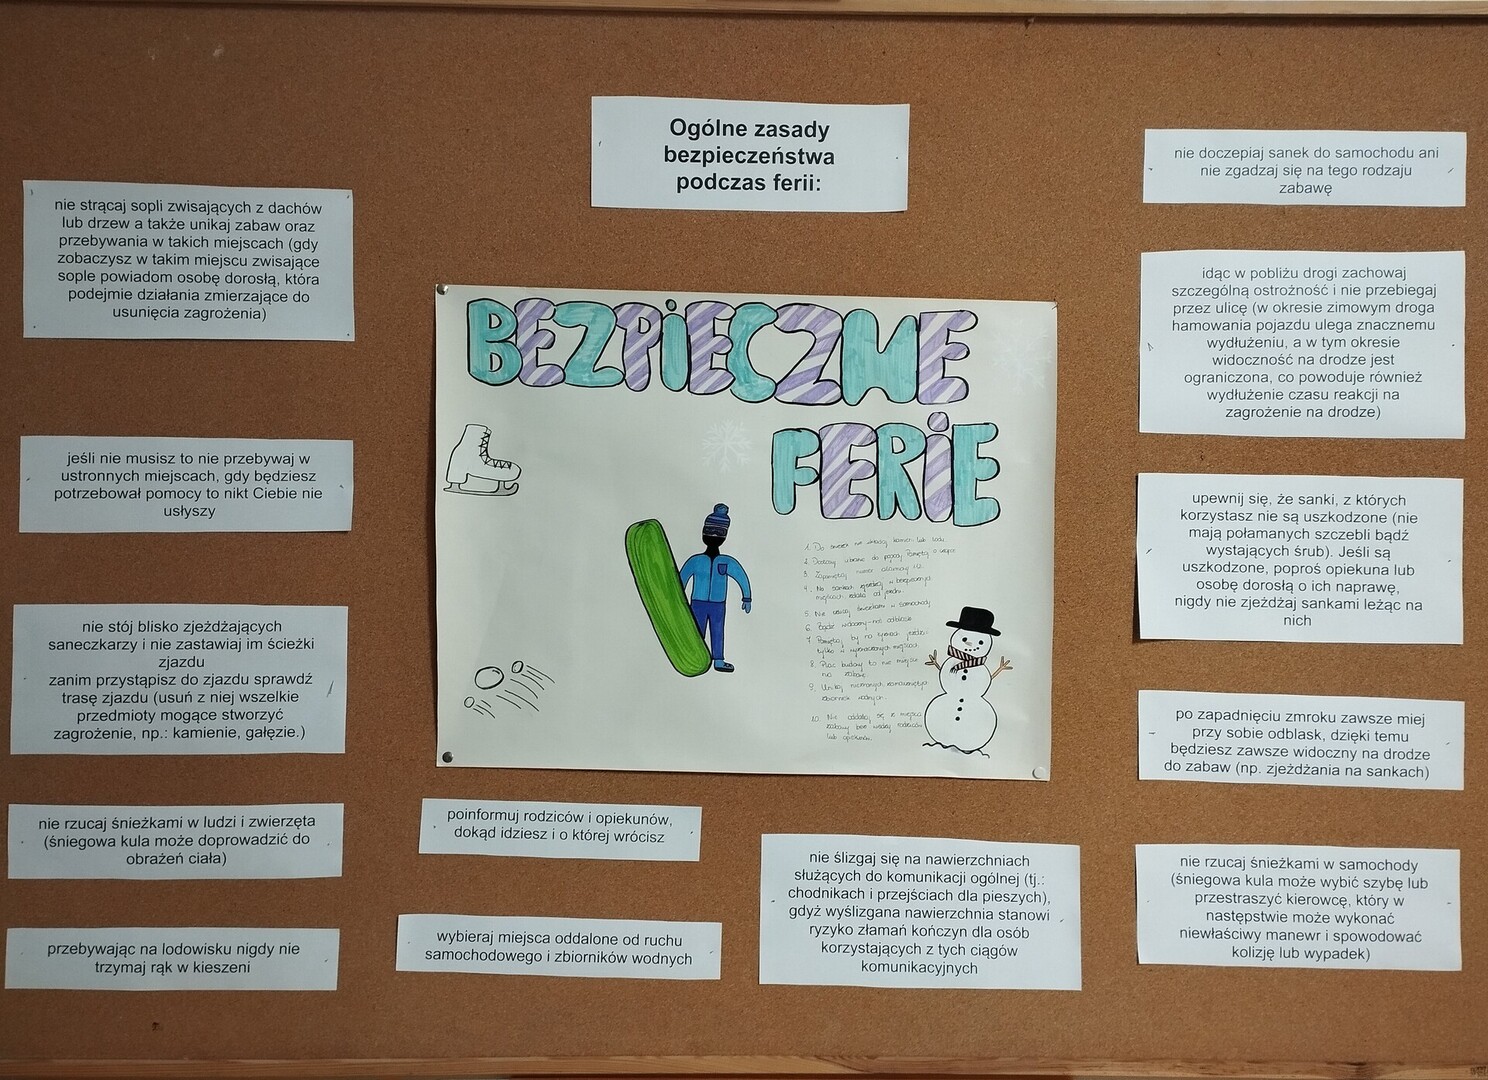 Ogólne zasady
bezpieczeństwa
podczas ferii:
nie strącaj sopli zwisających z dachów
lub drzew a także unikaj zabaw oraz
przebywania w takich miejscach (gdy
zobaczysz w takim miejscu zwisające
sople powiadom osobę dorosłą, która
podejmie działania zmierzające do
usunięcia zagrożenia)
jeśli nie musisz to nie przebywaj w
ustronnych miejscach, gdy będziesz
potrzebował pomocy to nikt Ciebie nie
usłyszy
nie stój blisko zjeżdżających
saneczkarzy i nie zastawiaj im ścieżki
zjazdu
zanim przystąpisz do zjazdu sprawdź
trasę zjazdu (usuń z niej wszelkie
przedmioty mogące stworzyć
zagrożenie, np.: kamienie, gałęzie.)
nie rzucaj śnieżkami w ludzi i zwierzęta
(śniegowa kula może doprowadzić do
obrażeń ciała)
przebywając na lodowisku nigdy nie
trzymaj rąk w kieszeni
BEZPIECZNE
FERIE
1. Do śnieżek nie wkładaj kamieni lub lodu.
3. Zapamiętaj numer alarmowy 112.
4. Na sankach zjeżdżaj w bezpiecznych
miejscach z dala od jezdni.
5. Nie rzucaj śnieżkami w samochody.
6. Bądź widoczny - noś odblaski.
7. Pamiętaj, by na łyżwach jeździć
tylko w wyznaczonych miejscach.
8. Plac budowy to nie miejsce
na zabawę.
9. Unikaj nieznanych zamarzniętych
zbiorników wodnych.
10. Nie oddalaj się z miejsca
zabawy bez wiedzy rodziców
lub opiekunów.
poinformuj rodziców i opiekunów,
dokąd idziesz i o której wrócisz
wybieraj miejsca oddalone od ruchu
samochodowego i zbiorników wodnych
nie ślizgaj się na nawierzchniach
służących do komunikacji ogólnej (tj.:
chodnikach i przejściach dla pieszych),
gdyż wyślizgana nawierzchnia stanowi
ryzyko złamań kończyn dla osób
korzystających z tych ciągów
komunikacyjnych
nie doczepiaj sanek do samochodu ani
nie zgadzaj się na tego rodzaju
zabawę
idąc w pobliżu drogi zachowaj
szczególną ostrożność i nie przebiegaj
przez ulicę (w okresie zimowym droga
hamowania pojazdu ulega znacznemu
wydłużeniu, a w tym okresie
widoczność na drodze jest
ograniczona, co powoduje również
wydłużenie czasu reakcji na
zagrożenie na drodze)
upewnij się, że sanki, z których
korzystasz nie są uszkodzone (nie
mają połamanych szczebli bądź
wystających śrub). Jeśli są
uszkodzone, poproś opiekuna lub
osobę dorosłą o ich naprawę,
nigdy nie zjeżdżaj sankami leżąc na
nich
po zapadnięciu zmroku zawsze miej
przy sobie odblask, dzięki temu
będziesz zawsze widoczny na drodze
do zabaw (np. zjeżdżania na sankach)
nie rzucaj śnieżkami w samochody
(śniegowa kula może wybić szybę lub
przestraszyć kierowcę, który w
następstwie może wykonać
niewłaściwy manewr i spowodować
kolizję lub wypadek)